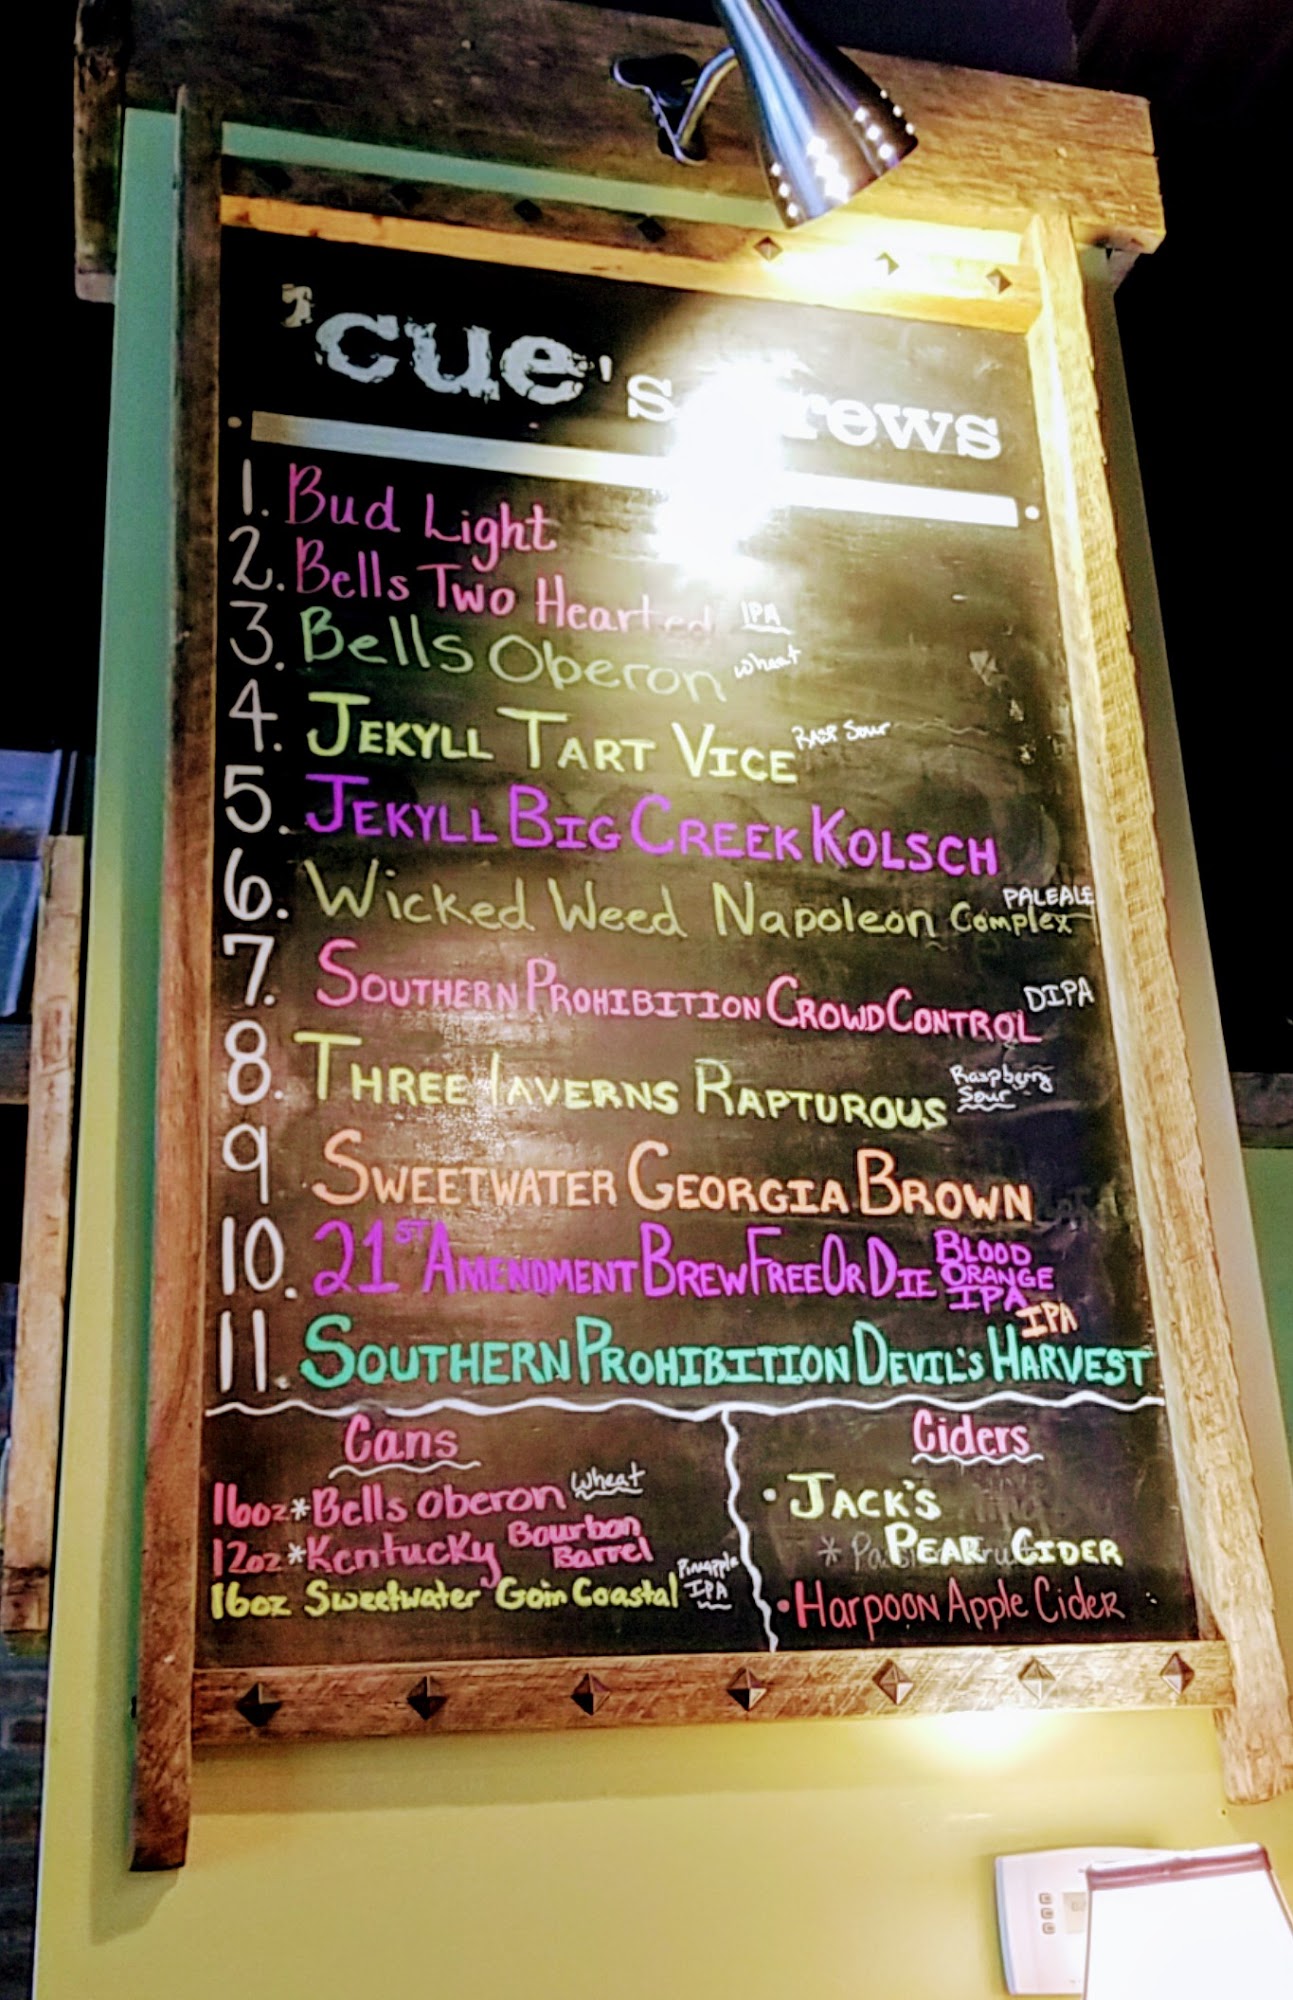 'cue's Brews
1. Bud Light
2. Bells Two Hearted IPA
3. Bells Oberon wheat
4. JEKYLL TART VICE RASP Sour
5. JEKYLL BIG CREEK KOLSCH
6. Wicked Weed Napoleon Complex PALE ALE
7. SOUTHERN PROHIBITION CROWD CONTROL DIPA
8. THREE TAVERNS RAPTUROUS Raspberry Sour
9 SWEETWATER GEORGIA BROWN
10. 21ST AMENDMENT BREW FREE OR DIE BLOOD ORANGE IPA
11. SOUTHERN PROHIBITION DEVIL'S HARVEST IPA
Cans
16oz*Bells Oberon wheat
12oz*Kentucky Bourbon Barrel
16oz Sweetwater Goin Coastal Pineapple IPA
Ciders
• JACK'S
PEAR CIDER
• Harpoon Apple Cider